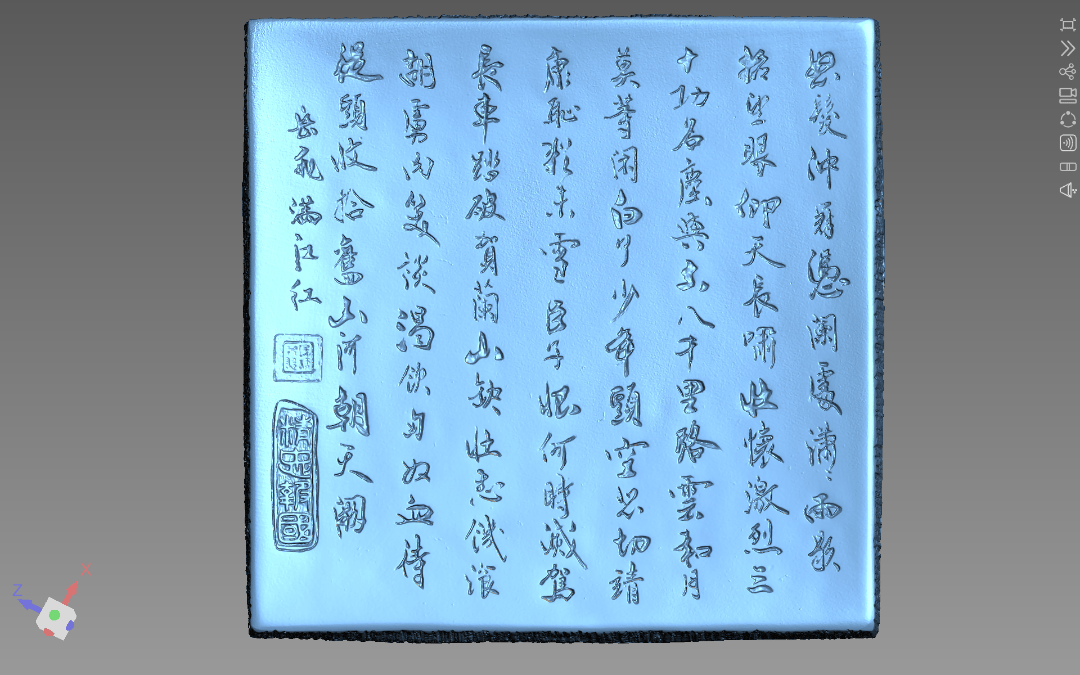 怒髮沖冠憑闌處瀟〻雨歇
抬望眼仰天長嘯壯懷激烈三
十功名塵與土八千里路雲和月
莫等闲白了少年頭空悲切靖
康恥猶未雪臣子恨何時滅駕
長車踏破賀蘭山缺壯志飢飡
胡虜肉笑談渴飲匈奴血待
從頭收拾舊山河朝天闕
岳飛滿江紅
精忠報國
X
Z